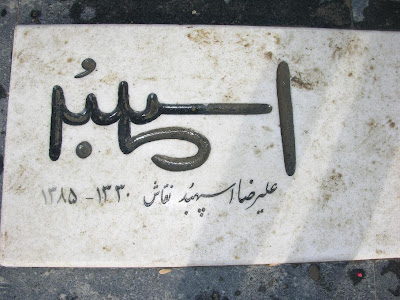 اسپهبُد
علیرضا اسپهبُد نقاش ۱۳۳۰-۱۳۸۵